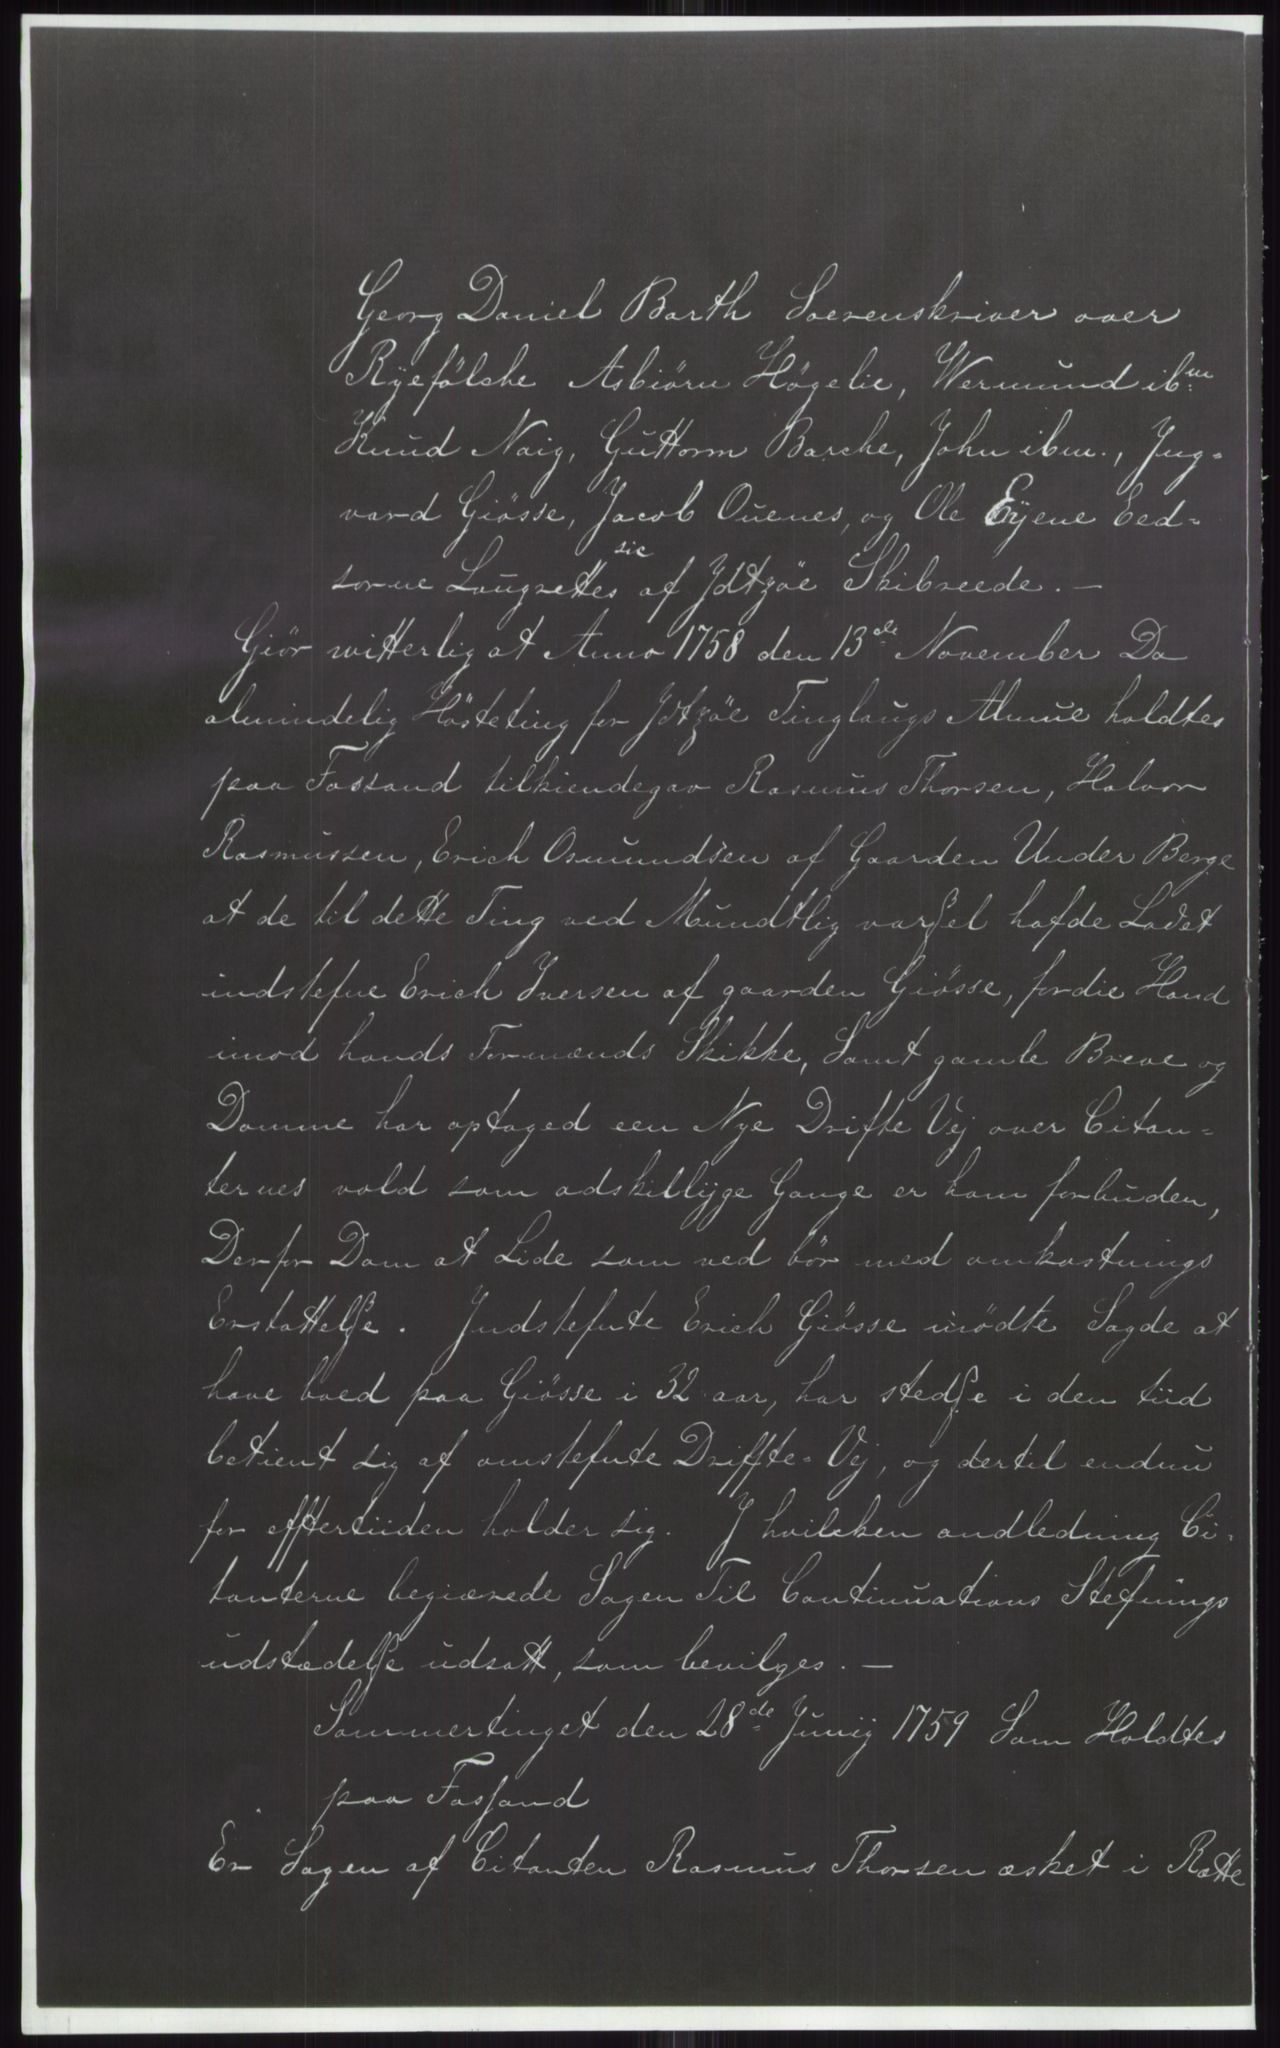 Georg Daniel Barth Sorenskriver over
Ryefölche Asbiörn Högelie, Wermund ibm
Knud Naig, Guttorm Barche, John ibm., Jng-
vard Giösse, Jacob Ouenes, og Ole Eyene Eed-
sorne Laugrettes sic af Jdtzöe Skibreede. —
Giör witterlig at Anno 1758 den 13de November Da
almindelig Hösteting for Jdtzöe Tinglaugs Almue holdtes
paa Fossand tilkiendegav Rasmus Thorsen, Halvor
Rasmussen, Erich Osmundsen af Gaarden Under Berge
at de til dette Ting ved Mundtlig varßel hafde Ladet
indstefne Erich Iversen af gaarden Giösse, fordie Hand
imod hands Formænds Skikke, Samt gamle Breve og
Domme har optaged een Nye Drifte Vej over Citan-
ternes vold som adskillige Gange er ham forbuden,
Derfor Dom at Lide som ved bör med omkostnings
Erstattelße. Jndstefnte Erich Giösse mödte Sagde at
have boed paa Giösse i 32 aar, har stedße i den tiid
betient sig af omstefnte Driffte-Vej, og dertil endnu
for efftertiiden holder sig. J hvilcken andledning Ci-
tanterne begiærede Sagen Til Continuations Stefnings
udstædelße udsatt, som bevilges. —
Sommertinget den 28de Junij 1759 Som Holdtes
paa Fossand
Er Sagen af Citanten Rasmus Thorsen æsket i Rætte